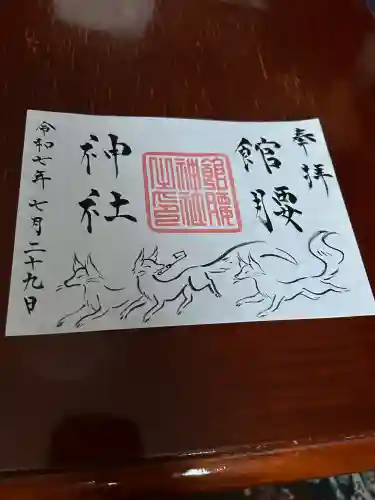 奉拝
館腰
神社
館腰神社之印
令和七年七月二十九日